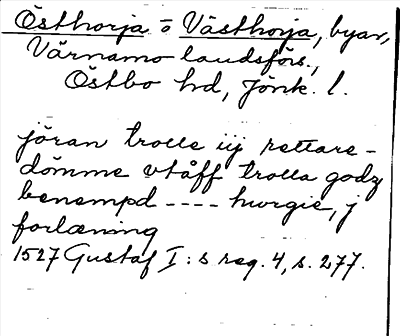 Östhorja o Västhorja, byar,
Värnamo landsförs.,
Östbo hd, Jönk. l.
jöran trolle iij rettare-
dömme vtåff trolla godz
benempd ---- hwrgie, j
forlæning
1527 Gustaf I:s reg. 4, s. 277.